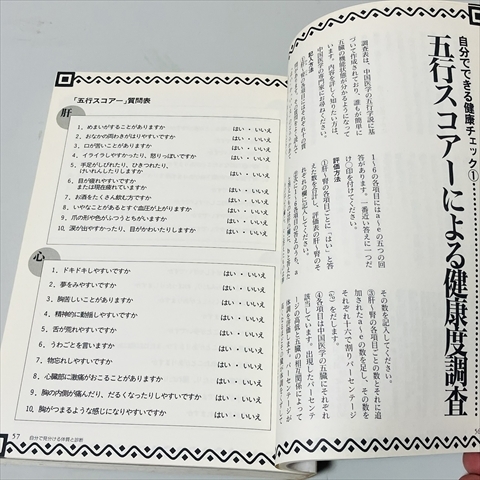 自分でできる健康チェック①
五行スコアーによる健康度調査
調査表は、中国医学の五行学説に基
づいて作成されており、誰もが簡単に
五臓の機能状態が分かるようになって
います。内容を詳しく知りたい方は、
中国医学の専門家にお尋ねください。
記入方法
1〜6の各項目にはa〜eの五つの回
答があります。一番近い答えに一つだ
け○印を付けてください。
評価方法
①肝〜腎の各項目ごとに「はい」と答
えた数を合計し、評価表の肝〜腎のそ
れぞれの欄に記入してください。
その数を記入してください。
③肝〜腎の各項目ごとの数とそれに追
加されたa〜eの数を足し、その数を
それぞれ十六で割りパーセンテージ
(%)をだします。
④各項目は中国医学の五臓にそれぞれ
該当しています。出現したパーセンテ
ージの高低と五臓の相互関係によって
体調を評価します。パーセンテージが
「五行スコアー」質問表
肝
1、めまいがすることがありますか はい・いいえ
2、おなかの両わきがはりやすいですか はい・いいえ
3、口が苦いことがありますか はい・いいえ
4、イライラしやすかったり、怒りっぽいですか はい・いいえ
5、手足がしびれたり、ひきつれたり、
けいれんしたりしますか はい・いいえ
6、目が疲れやすいですか
または現在疲れていますか はい・いいえ
7、お酒をたくさん飲む方ですか はい・いいえ
8、いやなことがあるとすぐ血圧が上がりますか はい・いいえ
9、爪の形や色がふつうとちがいますか はい・いいえ
10、涙が出やすかったり、目がかわいたりしますか はい・いいえ
心
1、ドキドキしやすいですか はい・いいえ
2、夢をみやすいですか はい・いいえ
3、胸苦しいことがありますか はい・いいえ
4、精神的に動揺しやすいですか はい・いいえ
5、舌が荒れやすいですか はい・いいえ
6、うわごとを言いますか はい・いいえ
7、物忘れしやすいですか はい・いいえ
8、心臓部に激痛がおこることがありますか はい・いいえ
9、胸の内側が痛んだり、だるくなったりしますか はい・いいえ
10、胸がつまるような感じになりやすいですか はい・いいえ
57 自分で見分ける体質と診断